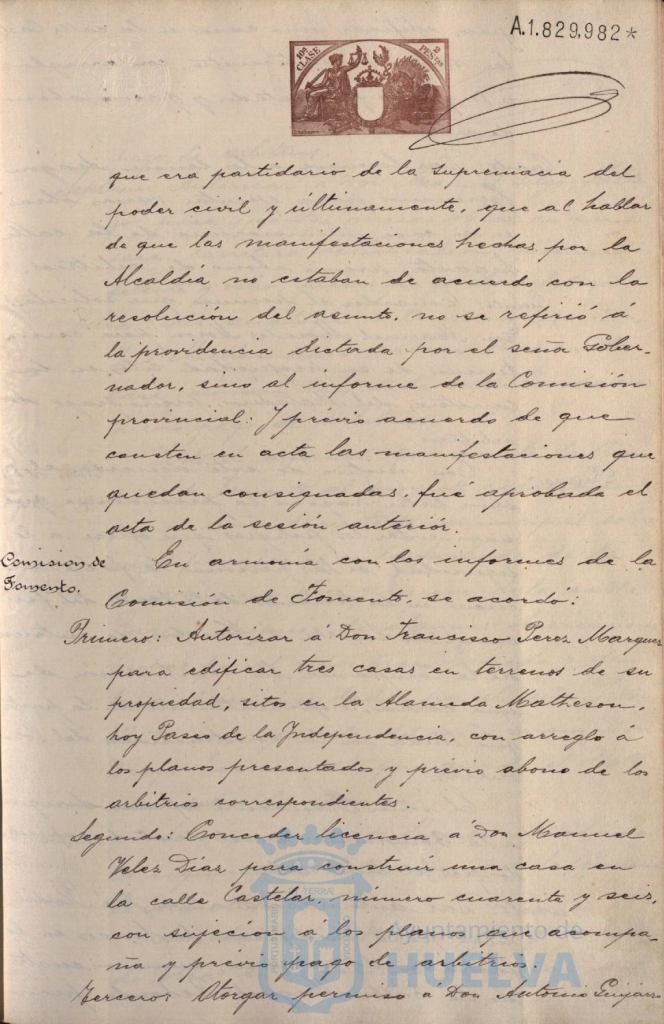 A.1.829,982*
10ª CLASE 2 PESTAS
que era partidario de la supremacia del
poder civil y últimamente, que al hablar
de que las manifestaciones hechas por la
Alcaldía no estaban de acuerdo con la
resolución del asunto, no se refirió á
la providencia dictada por el señor Gober-
nador, sino al informe de la Comisión
provincial: Y previo acuerdo de que
consten en acta las manifestaciones que
quedan consignadas, fué aprobada el
acta de la sesión anterior.
Comision de
Fomento.
En armonía con los informes de la
Comisión de Fomento, se acordó:
Primero: Autorizar á Don Francisco Perez Marquez
para edificar tres casas en terrenos de su
propiedad, sitos en la Alameda Matheson,
hoy Paseo de la Independencia, con arreglo á
los planos presentados y previo abono de los
arbitrios correspondientes.
Segundo: Conceder licencia á Don Manuel
Velez Díaz para construir una casa en
la calle Castelar, número cuarenta y seis,
con sujecion á los planos que acompa-
ña y previo pago de arbitrios.
Tercero: Otorgar permiso á Don Antonio Guijarro
Ayuntamiento de
HUELVA